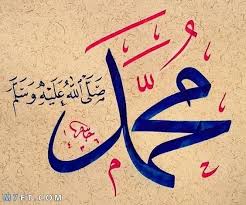 مُحَمَّد
صَلَّى اللهُ عَلَيْهِ وَسَلَّمَ
M7FT.COM